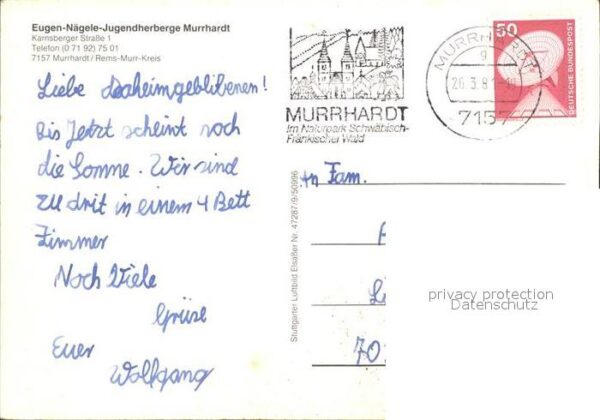 Eugen-Nägele-Jugendherberge Murrhardt
Karnsberger Straße 1
Telefon (0 71 92) 75 01
7157 Murrhardt / Rems-Murr-Kreis
Liebe Daheimgeblibenen!
Bis Jetzt scheint noch
die Sonne. Wir sind
zu drit in einem 4 Bett
Zimmer
Noch Viele
Grüse
Euer
Wolfgang
MURRHARDT
Im Naturpark Schwäbisch-
Fränkischer Wald
MURRHARDT
g
26.3.8
7157
50
DEUTSCHE BUNDESPOST
Stuttgarter Luftbild Elsäßer Nr. 47287/9/50996
An Fam.
70
privacy protection
Datenschutz